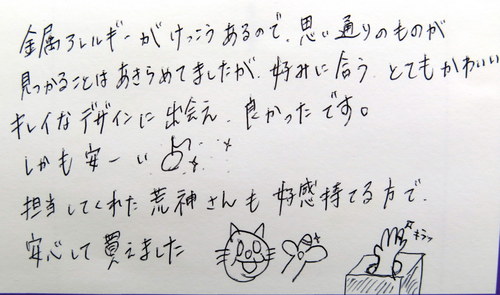 金属アレルギーがけっこうあるので、思い通りのものが
見つかることはあきらめてましたが、好みに合う、とてもかわいい
キレイなデザインに出会え、良かったです。
しかも安ーい♪
担当してくれた荒神さんも好感持てる方で、
安心して買えました
キラッ